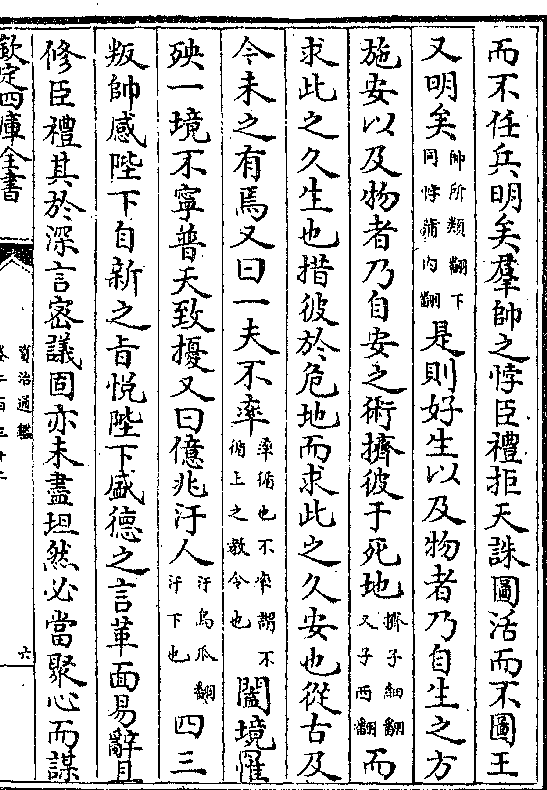 而不任兵明矣羣帥之悖臣禮拒天誅圖活而不圖王
又明矣帥所類翻下同悖蒲内翻是則好生以及物者乃自生之方
施安以及物者乃自安之術擠彼于死地擠子細翻又子西翻而
求此之久生也措彼於危地而求此之久安也從古及
今未之有焉又曰一夫不率率循也不率謂不循上之教令也闔境罹
殃一境不寧普天致擾又曰億兆汙人汙烏瓜翻汙下也四三
叛帥感陛下自新之旨悦陛下盛德之言革面易辭且
修臣禮其於深言密議固亦未盡坦然必當聚心而謀
欽定四庫全書
資治通鑑
卷二百三十二
六